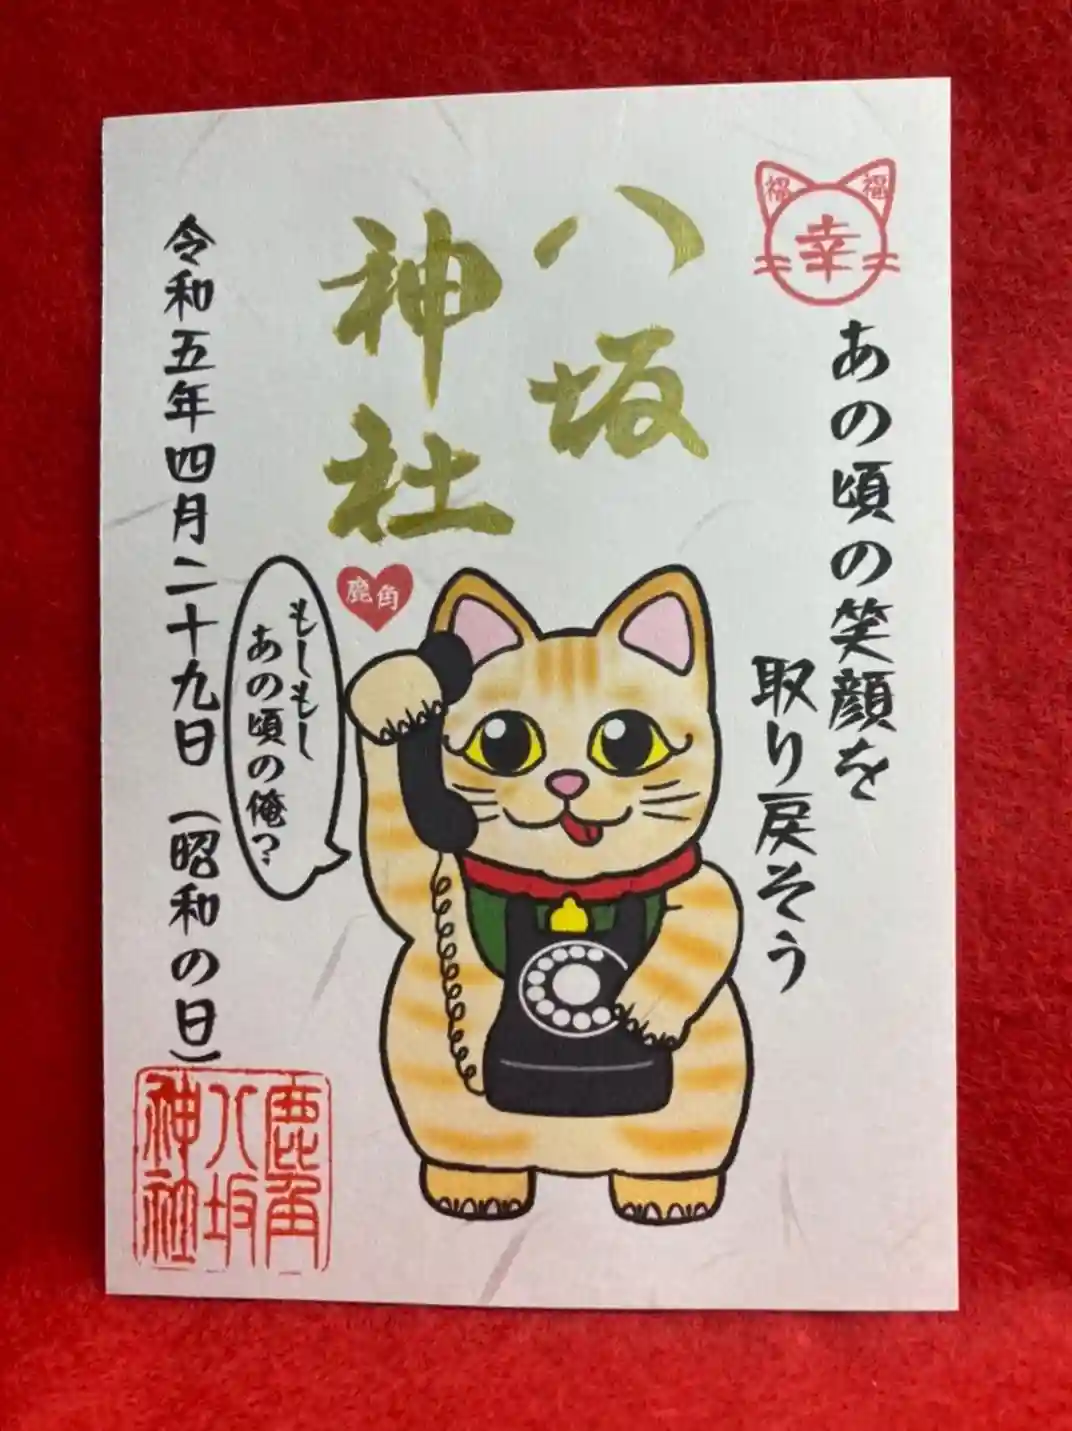 福
福
幸
あの頃の笑顔を
取り戻そう
八坂
神社
鹿角
もしもし
あの頃の俺?
令和五年四月二十九日(昭和の日)
鹿角
八坂
神社